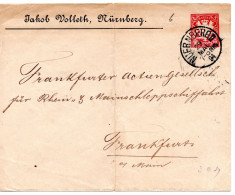 Jakob Volleth, Nürnberg. 6
NUERNBERG
Frankfurter Actien Gesellschaft
für Rhein- & Mainschleppschiffahrt
Frankfurt
a/Main